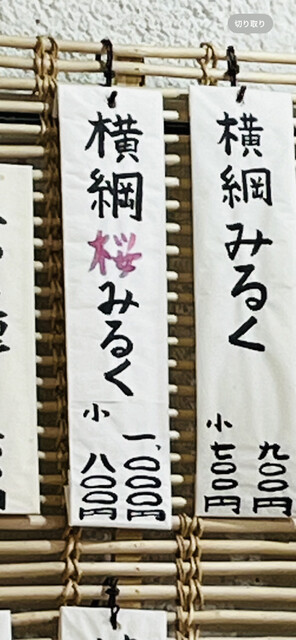 切り取り
横綱みるく
九〇〇円
小
七〇〇円
横綱桜みるく
一、〇〇〇円
小
八〇〇円